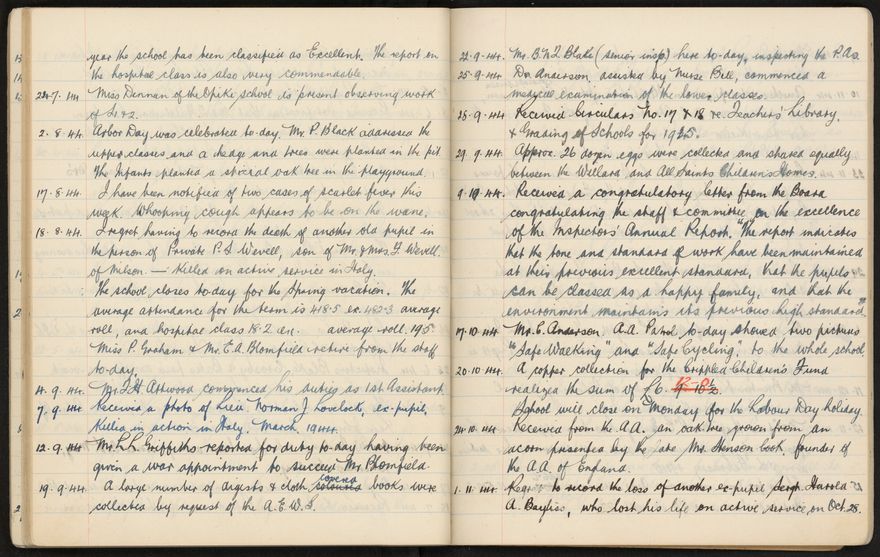 year the school has been classified as Excellent. The report on
the hospital class is also very commendable.
24.7.44 Miss Dennan of the Spike school is present observing work
of Ss 2.
2.8.44. Arbor Day was celebrated to-day. Mr. P. Black addressed the
upper classes and a hedge and trees were planted in the pit.
The Infants planted a special oak tree in the playground.
17.8.44. I have been notified of two cases of scarlet fever this
week. Whooping cough appears to be on the wane.
18.8.44. I regret having to record the death of another old pupil in
the person of Private P. S Wevell, son of Mr. & Mrs. F. Wevell
of Nelson. — Killed on active service in Italy.
The school closes to-day for the Spring vacation. The
average attendance for the term is 418.5 ex. 482.3 average
roll, and hospital class 18.2 average roll. 19.5.
Miss P. Graham & Mr. E. A. Blomfield retire from the staff
to-day.
4.9.44. Mr. Attwood commenced his duties as 1st Assistant.
7.9.44. Received a photo of Lieu. Norman J Lovelock, ex-pupil,
killed in action in Italy. March, 1944.
12.9.44 Mr. L.L. Griffiths reported for duty to-day having been
given a war appointment to succeed Mr. Blomfield.
19.9.44. A large number of digests & cloth covered coloured books were
collected by request of the A.E.W.S.
22.9.44. Mr. Blake (senior insp.) here to-day, inspecting the P.As.
25.9.44. Dr. Anderson, assisted by Nurse Bell, commenced a
medical examination of the lower classes.
28.9.44 Received Circulars No. 17 & 18 re Teachers' Library
& Grading of Schools for 1945.
29.9.44. Approx. 26 dozen eggs were collected and shared equally
between the Willard and All Saints Children's Homes.
9.10.44. Received a congratulatory letter from the Board
congratulating the staff & committee on the excellence
of the Inspectors' Annual Report. "The report indicates
that the tone and standard of work have been maintained
at their previous excellent standard, that the pupils
can be classed as a happy family, and that the
environment maintains its previous high standard."
17.10.44 Mr. E. Anderson. A.A. Patrol to-day showed two pictures
"Safe Walking" and "Safe Cycling". to the whole school
20.10.44 A copper collection for the Crippled Children's Fund
realized the sum of £6.
School will close on Monday for the Labour Day holiday.
24.10.44 Received from the A.A. an oak tree grown from an
acorn presented by the late Mr. Stenson Cook, founder of
the A.A. of England.
1.11.44 Regret to record the loss of another ex-pupil, Sergt Harold
A. Bayliss, who lost his life on active service on Oct. 28.